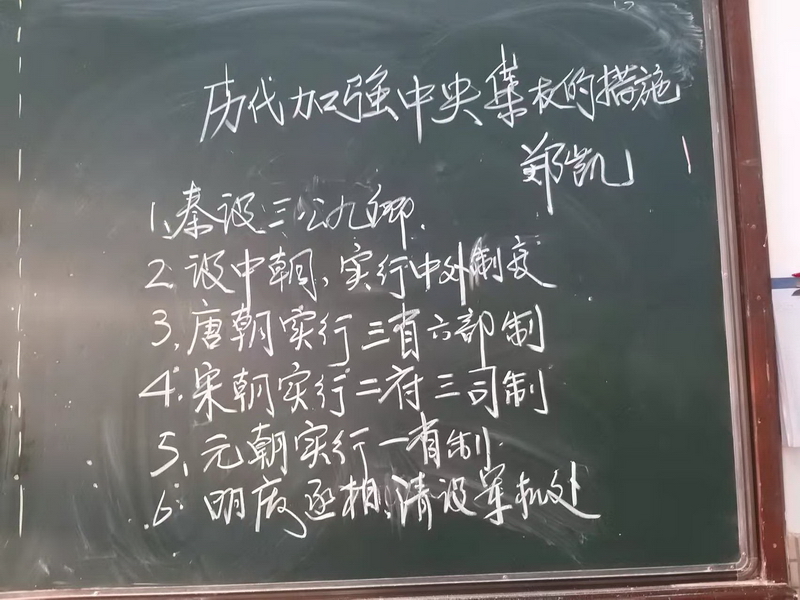 历代加强中央集权的措施
郑凯
1.秦设三公九卿.
2.设中朝,实行中外制度
3.唐朝实行三省六部制
4.宋朝实行二府三司制
5.元朝实行一省制
6.明废丞相,清设军机处